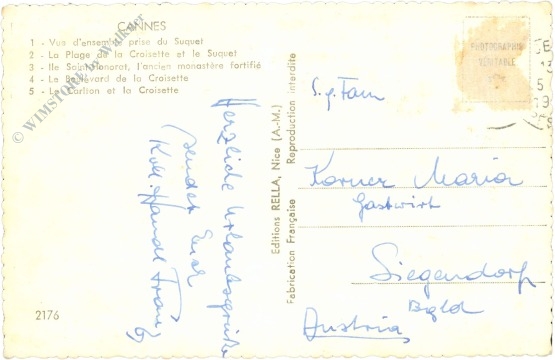 CANNES
1 - Vue d'ensemble prise du Suquet
2 - La Plage de la Croisette et le Suquet
3 - Ile Saint-Honorat, l'ancien monastère fortifié
4 - Le Boulevard de la Croisette
5 - Le Carlton et la Croisette
© WIMSTORE by Walkner
Herzliche Urlaubsgrüße
sendet Euer
Koll. Handl Franz
2176
Editions RELLA, Nice (A.-M.)
Fabrication Française Reproduction interdite
PHOTOGRAPHIE
VÉRITABLE
S. g. Fam
Korner Maria
Gastwirt
Siegendorf
Bgld
Austria